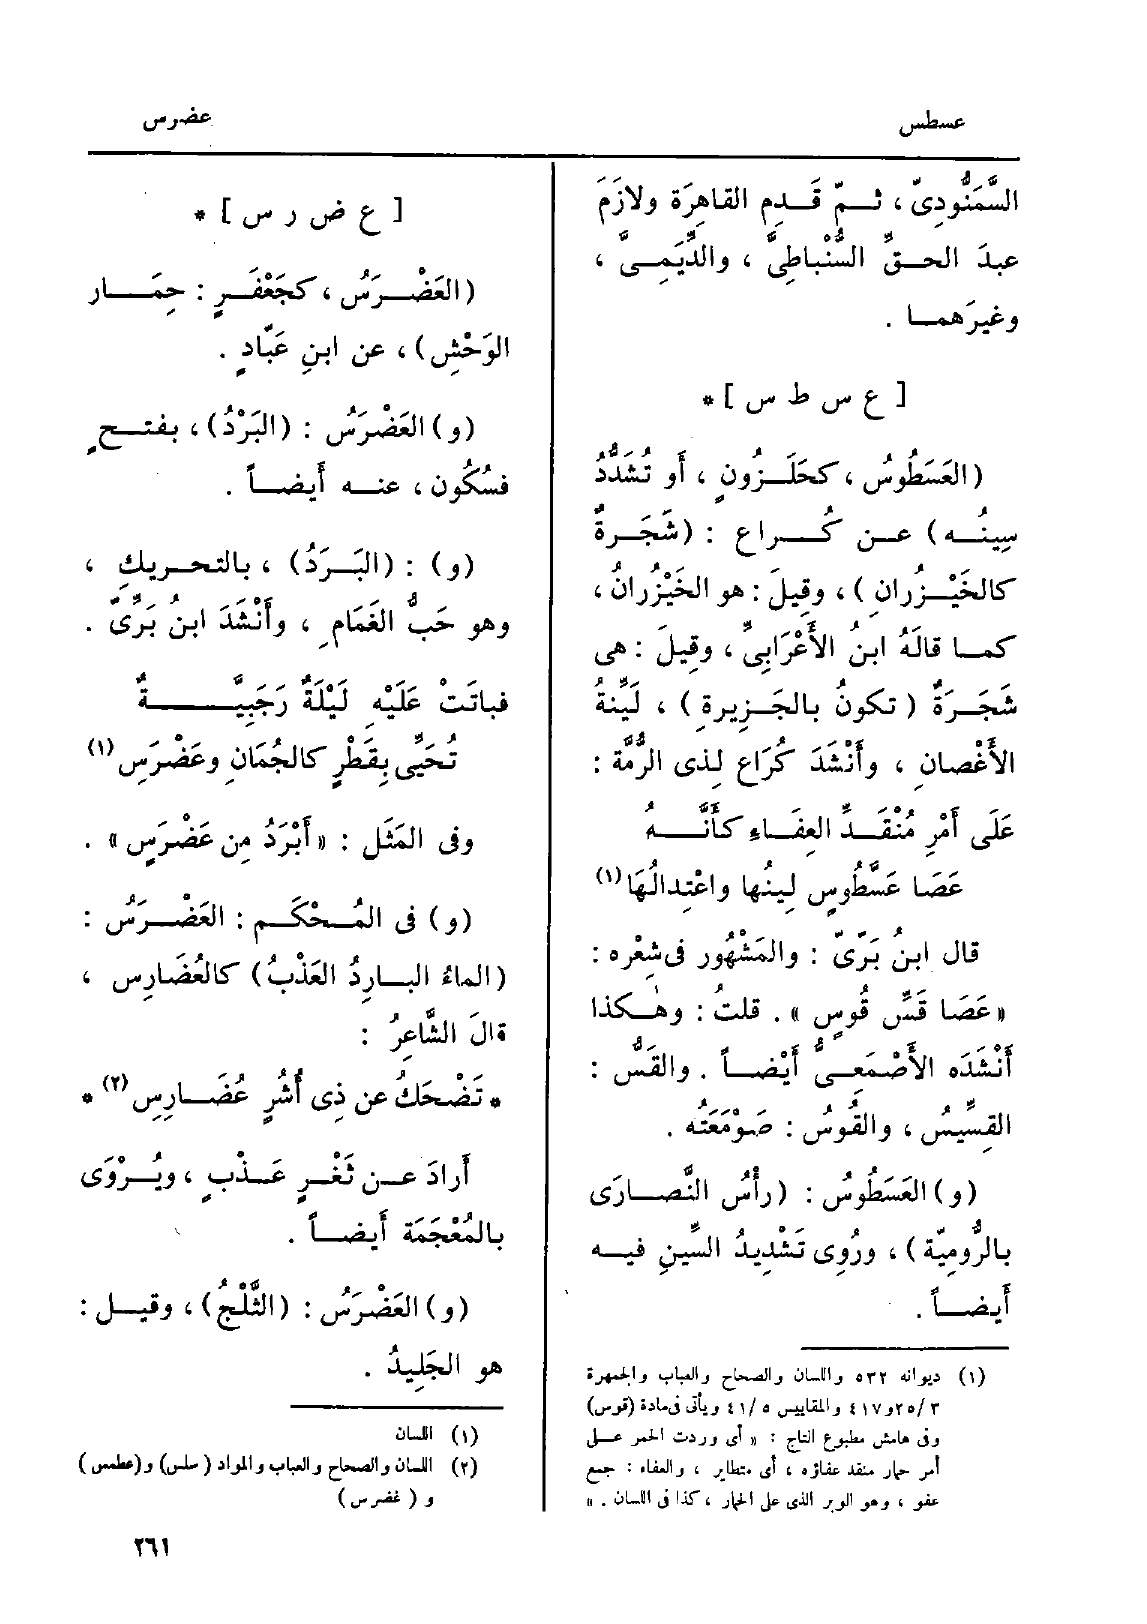 عسطس
عضرس
السَّمَنُّودِىّ ، ثــمّ قَــدِم القاهِرَة ولازَمَ
عبدَ الحــقِّ السُّنْباطِىَّ ، والدِّيَمِــىَّ ،
وغيرَهمــا .
[ ع س ط س ] *
(العَسَطُوسُ ، كحَلَــزُونٍ ، أَو تُشَدَّدُ
سِينُــه) عــن كُــرَاع : (شَجَــرةٌ
كالخَيْــزُران ) ، وقِيلَ : هو الخَيْزُرانُ ،
كمــا قالَهُ ابنُ الأَعْرَابِىِّ ، وقِيلَ : هى
شَجَــرَةٌ ( تكونُ بالجَــزِيرةِ ) ، لَيِّنةُ
الأَغْصانِ ، وأَنْشَدَ كُرَاع لِــذى الرُّمَّة :
عَلَى أَمْرِ مُنْقَــدِّ العِفَــاءِ كأَنَّــــهُ
عَصَا عَسَّطُوسٍ لِينُها واعْتِدالُهَا (١)
قال ابنُ بَرِّىّ : والمَشْهُور فى شِعْره :
« عَصَا قَسِّ قُوسٍ » . قلتُ : وهٰــكذا
أَنْشَدَه الأَصْمَعِــىُّ أَيْضــاً . والقَسُّ :
القِسِّيسُ ، والقُوسُ : صَوْمَعَتُه .
(و) العَسَطُوسُ : (رأْسُ النَّصــارَى
بالرُّومِيّة ) ، ورُوِى تَشْدِيدُ السِّينِ فيــه
أَيضــاً .
(١) ديوانه ٥٣٢ واللسان والصحاح والعباب والجمهرة
٣ /٢٥ و٤١٧ والمقاييس ٥ /٤١ ويأتى فى مادة (قوس)
وفى هامش مطبوع التاج : « أى وردت الحمر عــلى
أمر حمار منقد عفاؤه ، أى متطاير ، والعفاء : جمع
عفو ، وهو الوبر الذى على الحمار ، كذا فى اللسان . »
[ ع ض ر س ] *
(العَضْــرَسُ ، كجَعْفَــرٍ : حِمَــار
الوَحْشِ) ، عن ابنِ عَبّادٍ .
(و) العَضْرَسُ : (البَرْدُ) ، بفتــحٍ
فسُكُون ، عنــه أَيضــاً .
(و) : (البَــرَدُ) ، بالتحــريكِ ،
وهو حَبُّ الغَمَامِ ، وأَنْشَدَ ابنُ بَرِّىّ .
فباتَتْ عَلَيْهِ لَيْلَةٌ رَجَبِيَّــــةٌ
تُحَيِّى بِقَطْرٍ كالجُمَانِ وعَضْرَسِ (١)
وفى المَثَل : « أَبْرَدُ مِن عَضْرَسٍ » .
(و) فى المُــحْكَــم : العَضْــرَسُ :
(الماءُ البــارِدُ العَذْبُ) كالعُضَارِس ،
قالَ الشَّاعِرُ :
* تَضْحَكُ عن ذِى أُشُرٍ عُضَــارِسِ (٢) *
أَرادَ عــن ثَغْــرٍ عَــذْبٍ ، ويُــرْوَى
بالمُعْجَمَة أَيضــاً .
(و) العَضْرَسُ : (الثَّلْجُ) ، وقيــل :
هو الجَلِيدُ .
(١) اللسان
(٢) اللسان والصحاح والعباب والمواد (سلس) و(عطمس)
و ( غضرس )
٢٦١